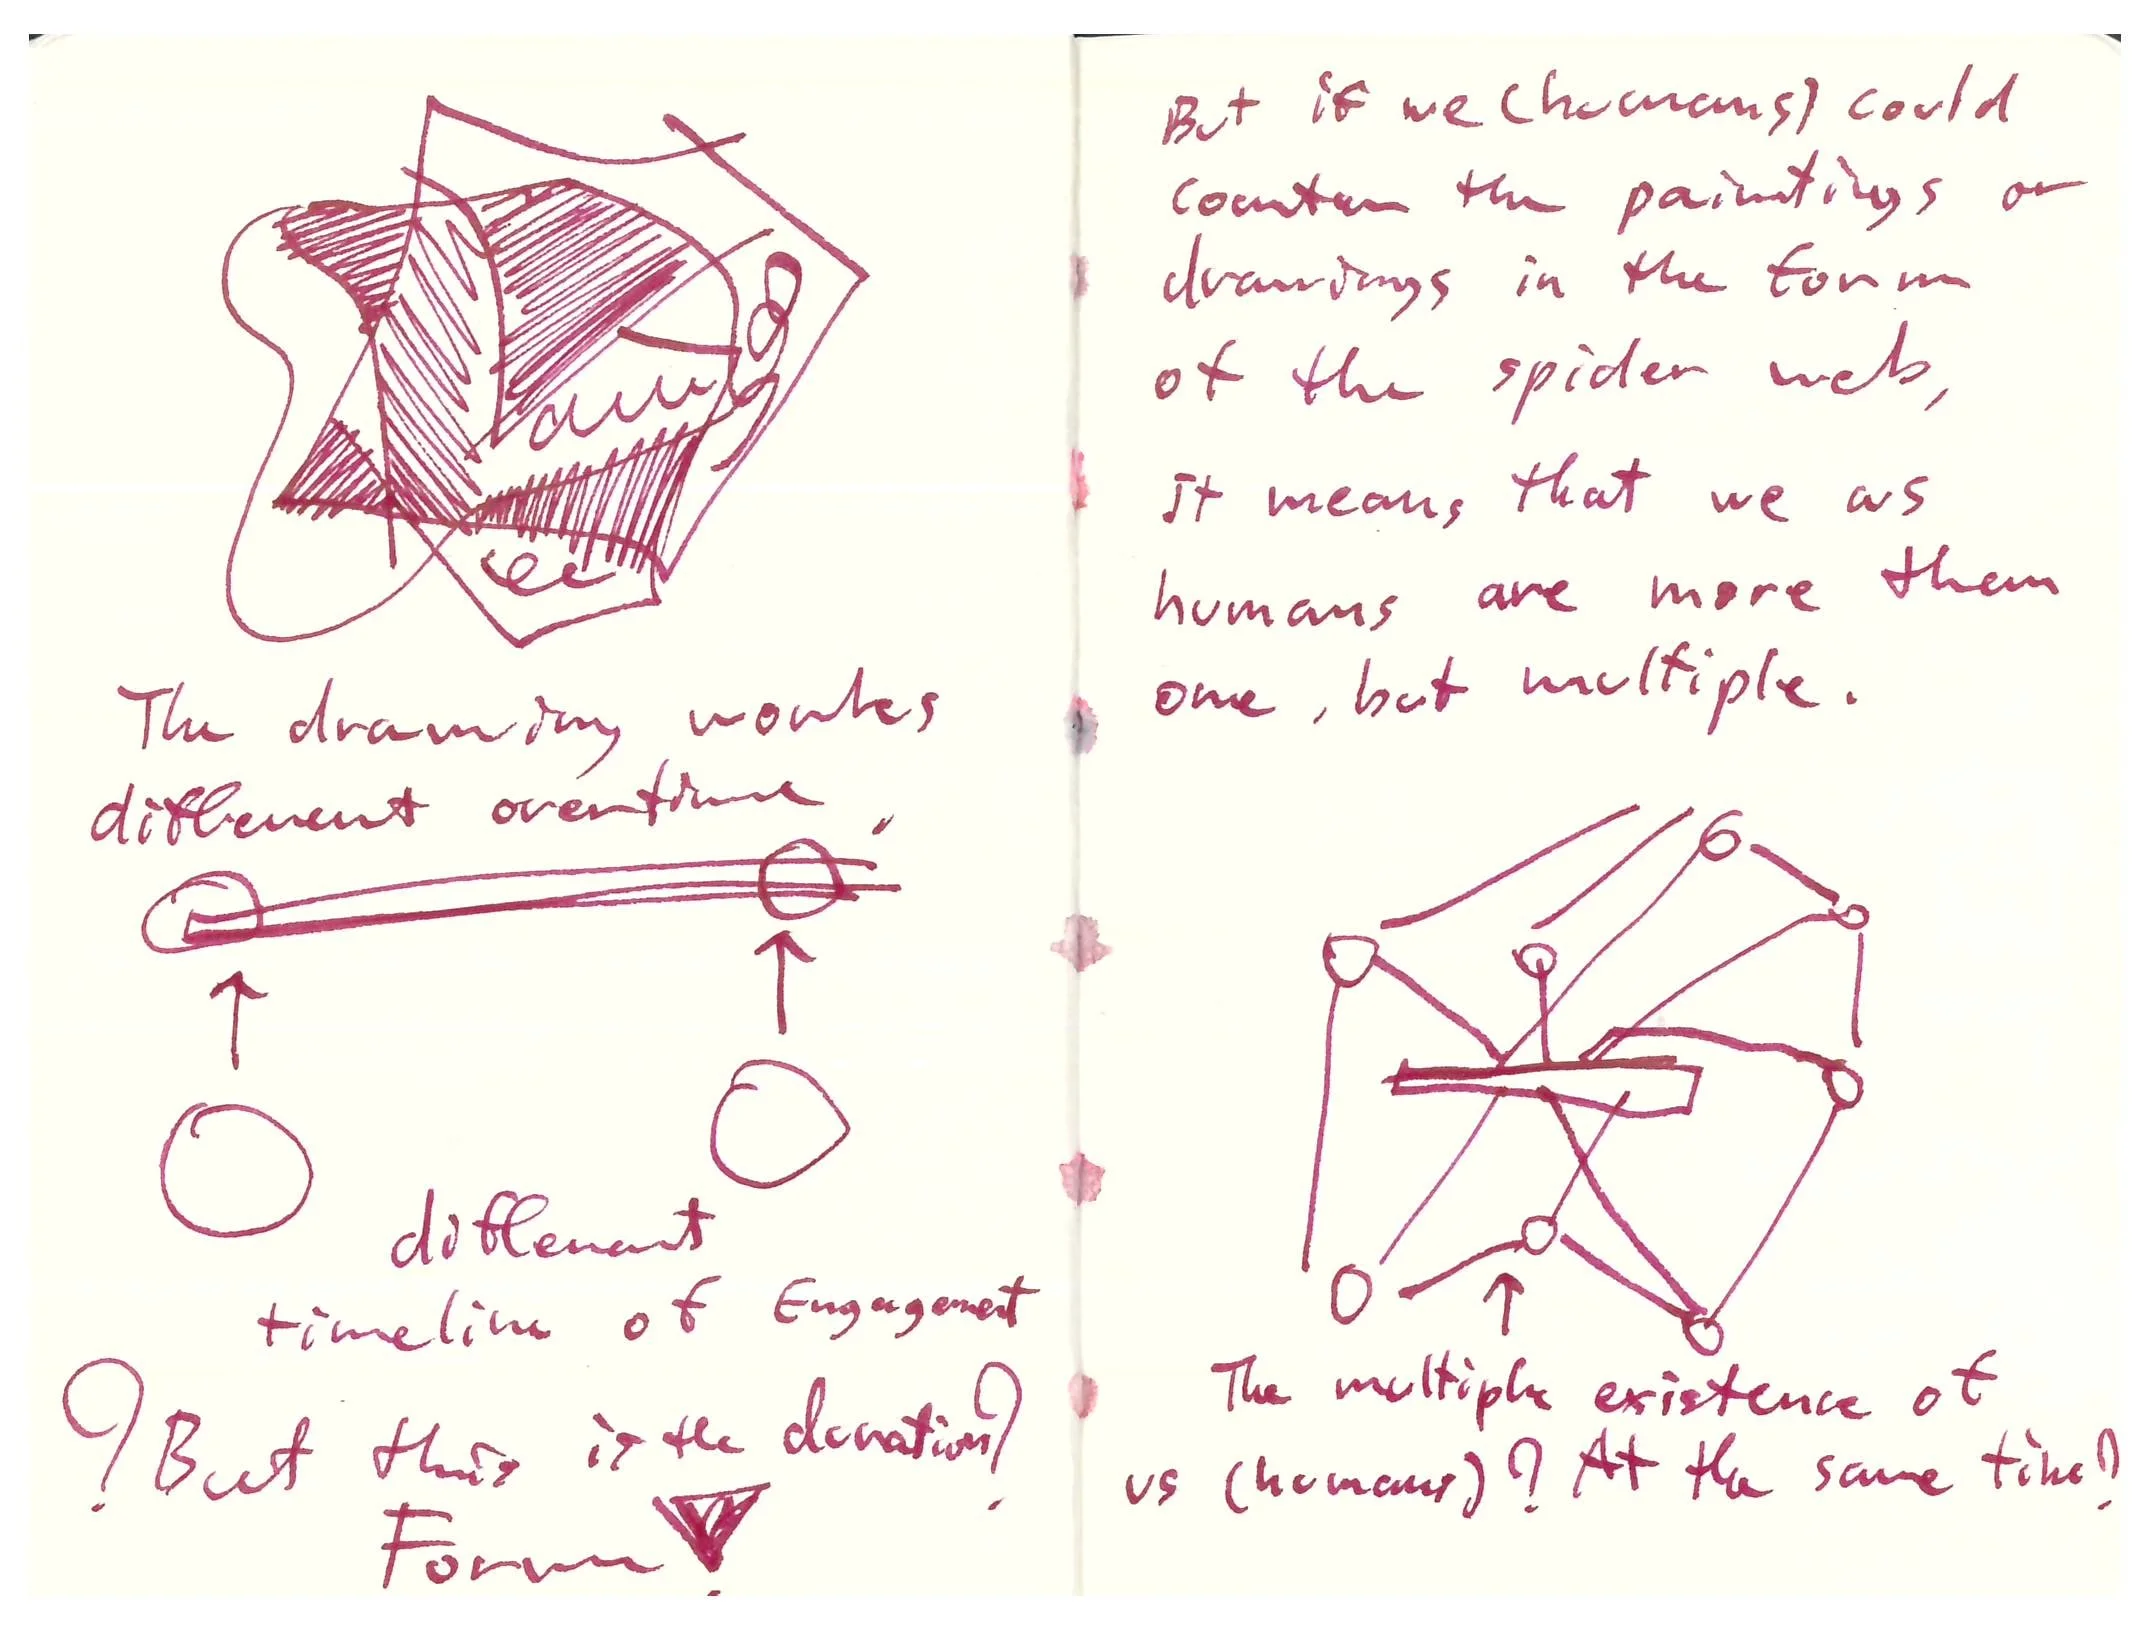 The drawing workes
different overtime.
different
timeline of Engagement
? But this is the duration?
Form!
But if we (humans) could
counter the paintings or
drawings in the form
of the spider web,
It means that we as
humans are more then
one, but multiple.
The multiple existence of
us (humans)? At the same time?